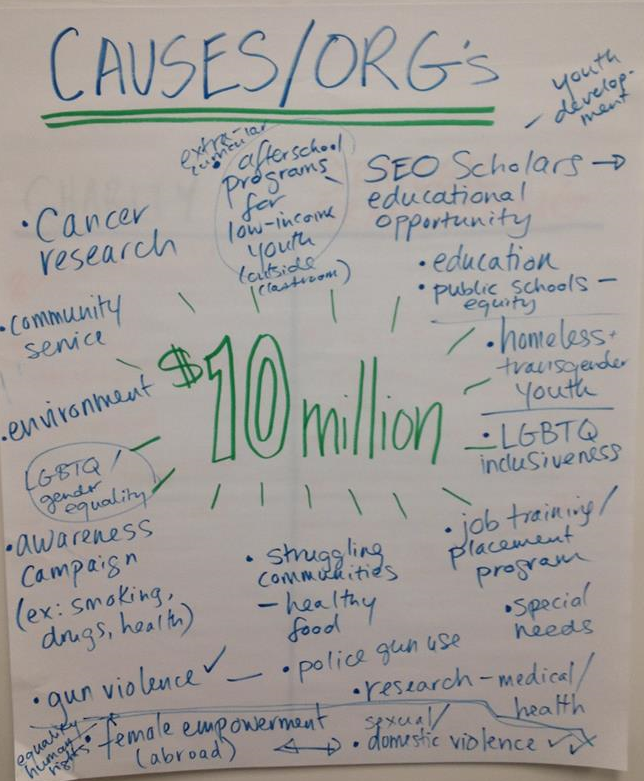 CAUSES/ORG's
youth
develop-
ment
extra-
curricular
• afterschool
programs
for
low-income
youth
(outside
classroom)
SEO Scholars →
educational
opportunity
• Cancer
research
• education
• public schools –
equity
• community
service
• homeless +
transgender
youth
• environment
$10 million
• LGBTQ
inclusiveness
LGBTQ/
gender
equality
• awareness
campaign
(ex: smoking,
drugs, health)
• struggling
communities
– healthy
food
• job training/
placement
program
• special
needs
• gun violence ✓ —
• police gun use
• research – medical/
health
equality
human
rights
• female empowerment
(abroad)
sexual/
• domestic violence ✓